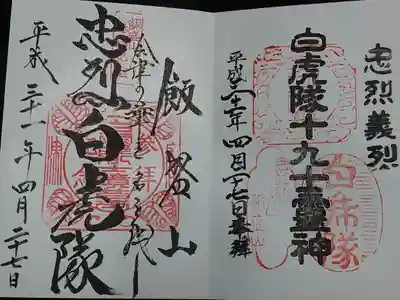 忠烈義烈
白虎隊十九士靈神
平成三十一年四月二十七日奉拝
白虎隊
飯盛山
会津の命と名を残し
忠烈
白虎隊
平成三十一年四月二十七日